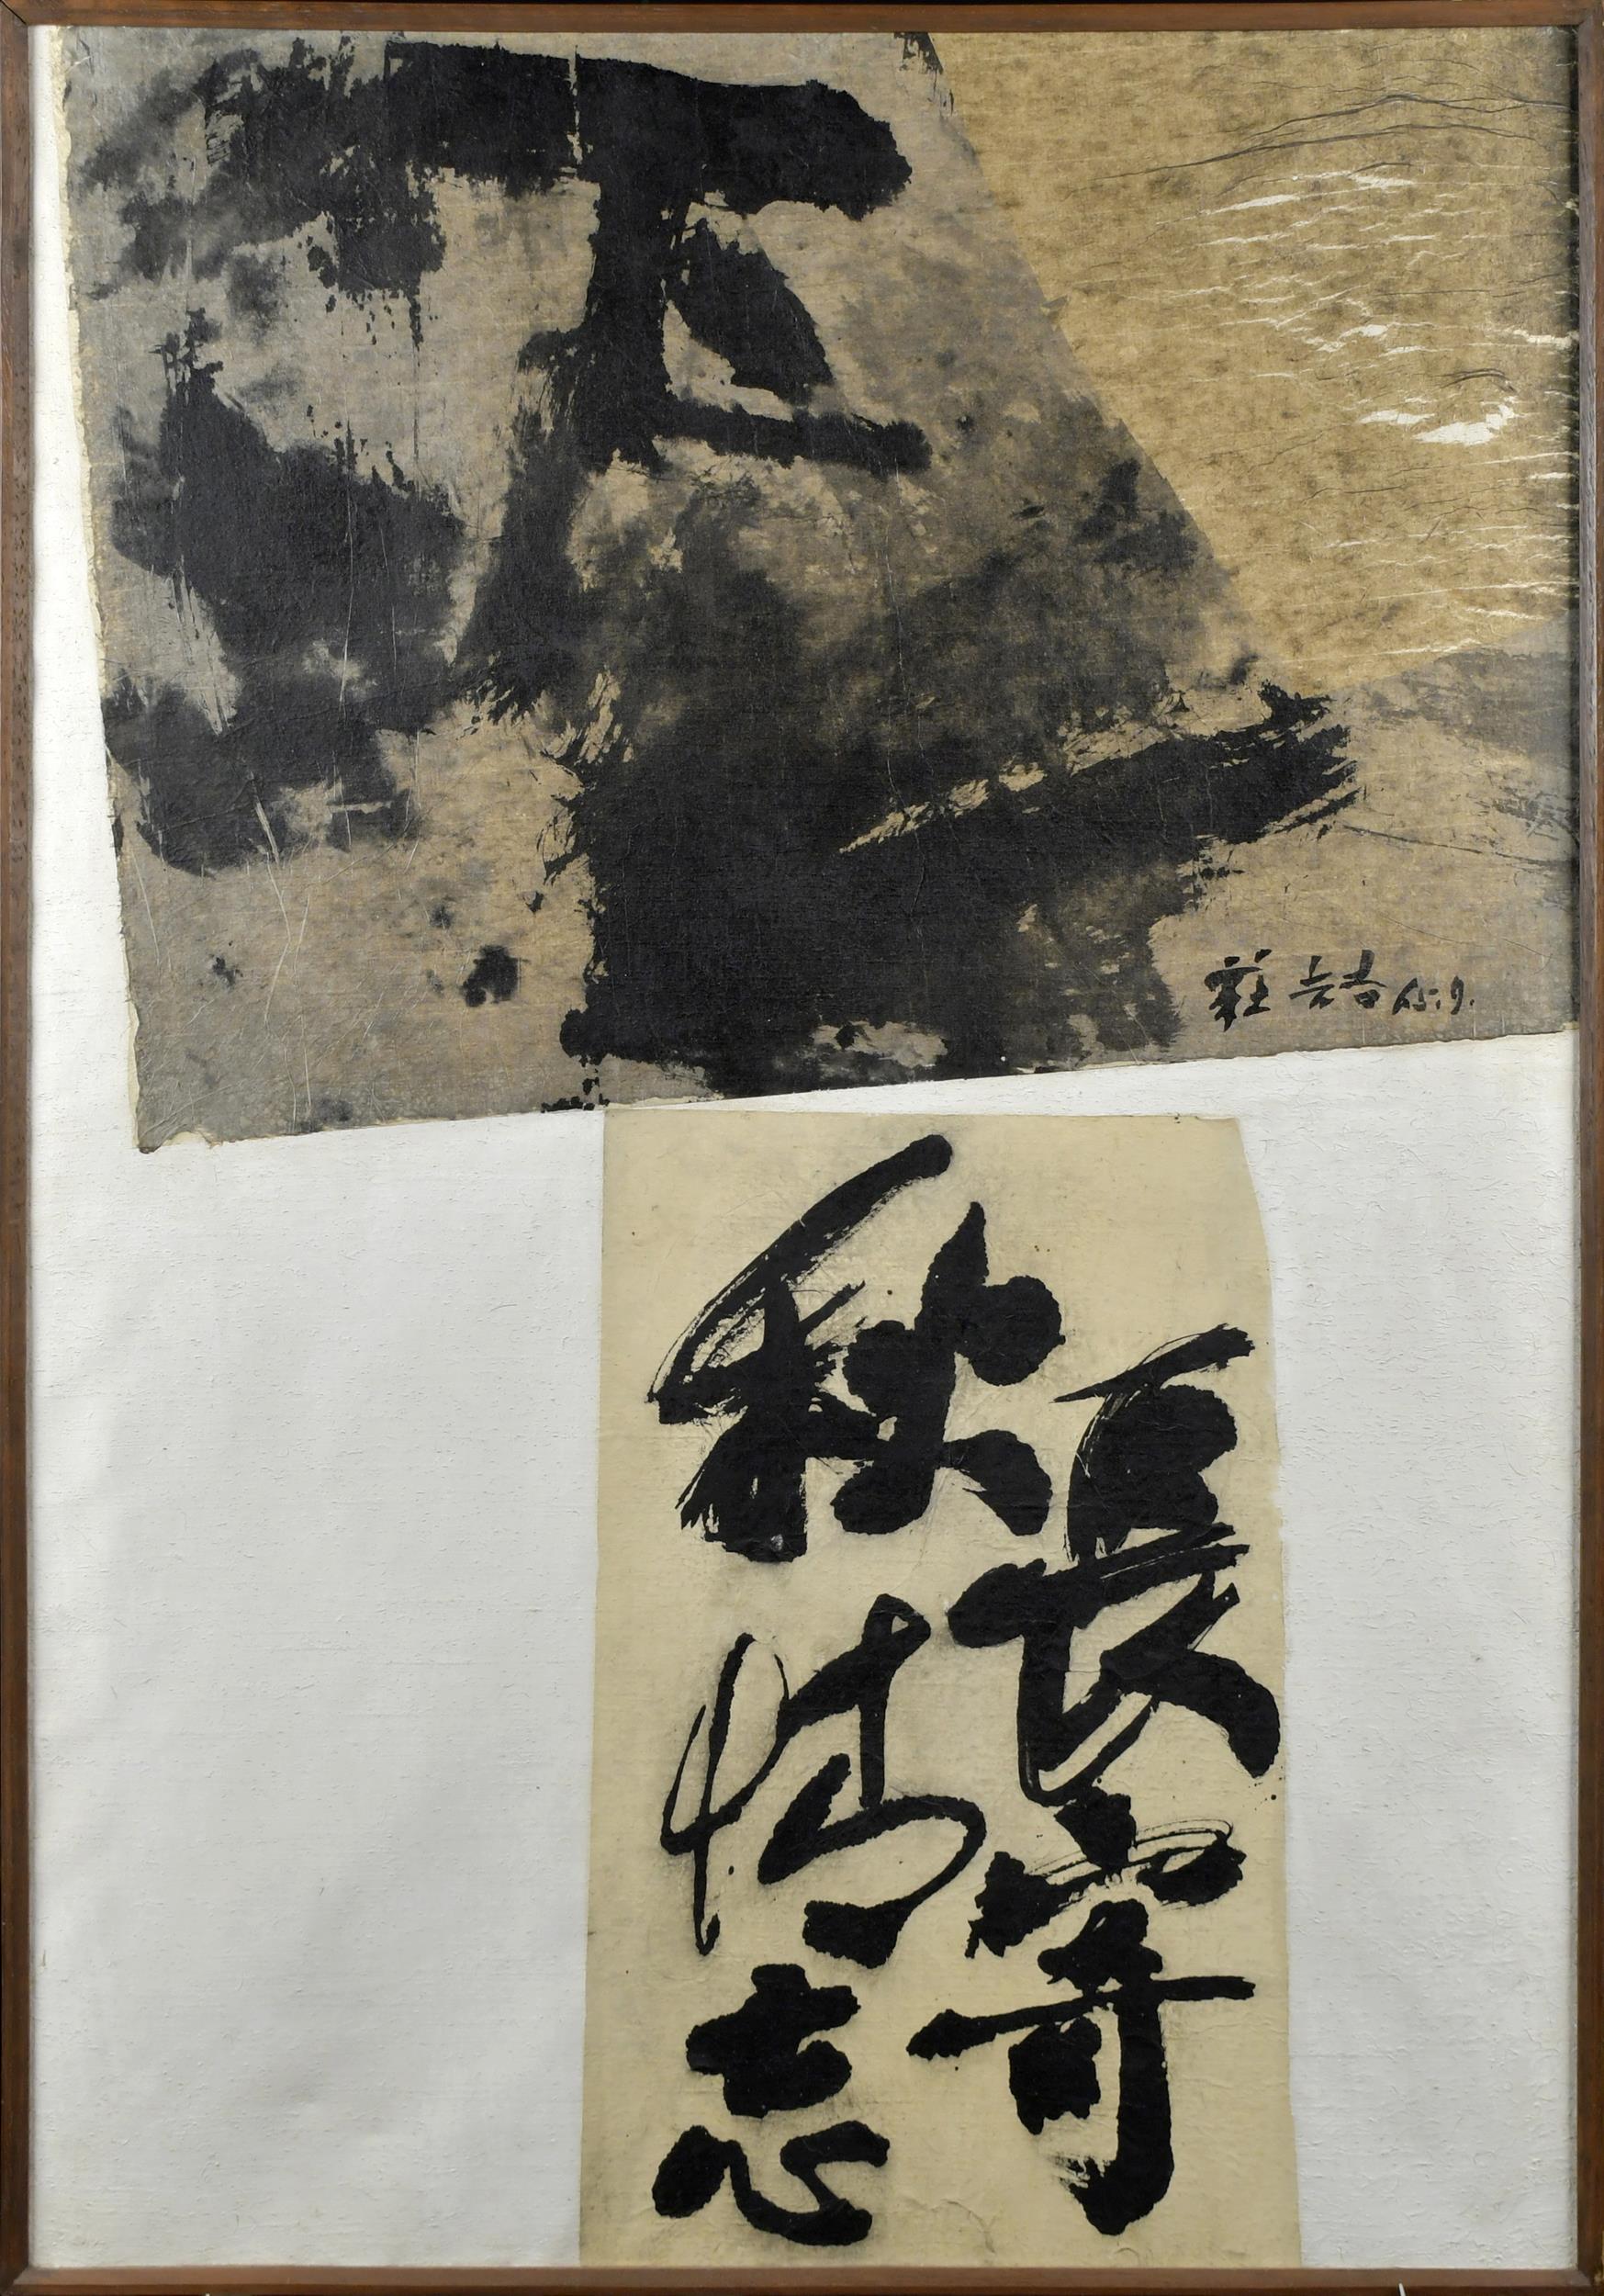 莊喆 65.9.
長寄
秋情志